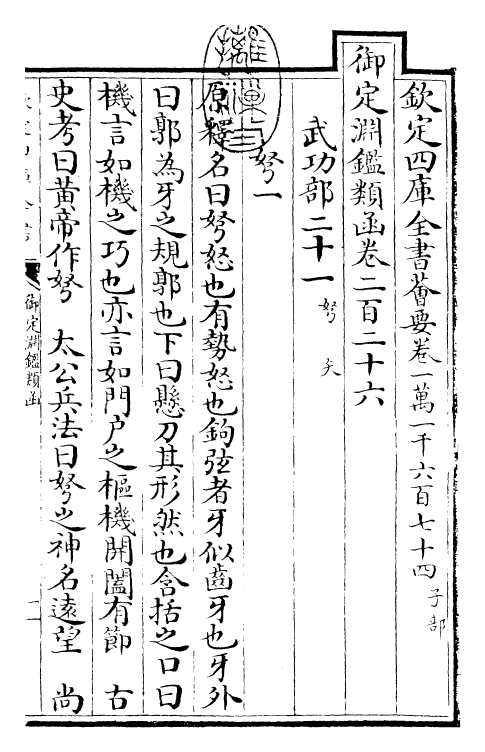 欽定四庫全書薈要卷一萬一千六百七十四 子部
御定淵鑑類函卷二百二十六
武功部二十一 弩 矢
弩一
原釋名曰弩怒也有勢怒也鉤弦者牙似齒牙也牙外
曰郭為牙之規郭也下曰懸刀其形然也含括之口曰
機言如機之巧也亦言如門户之樞機開闔有節 古
史考曰黄帝作弩 太公兵法曰弩之神名遠望 尚
御定淵鑑類函